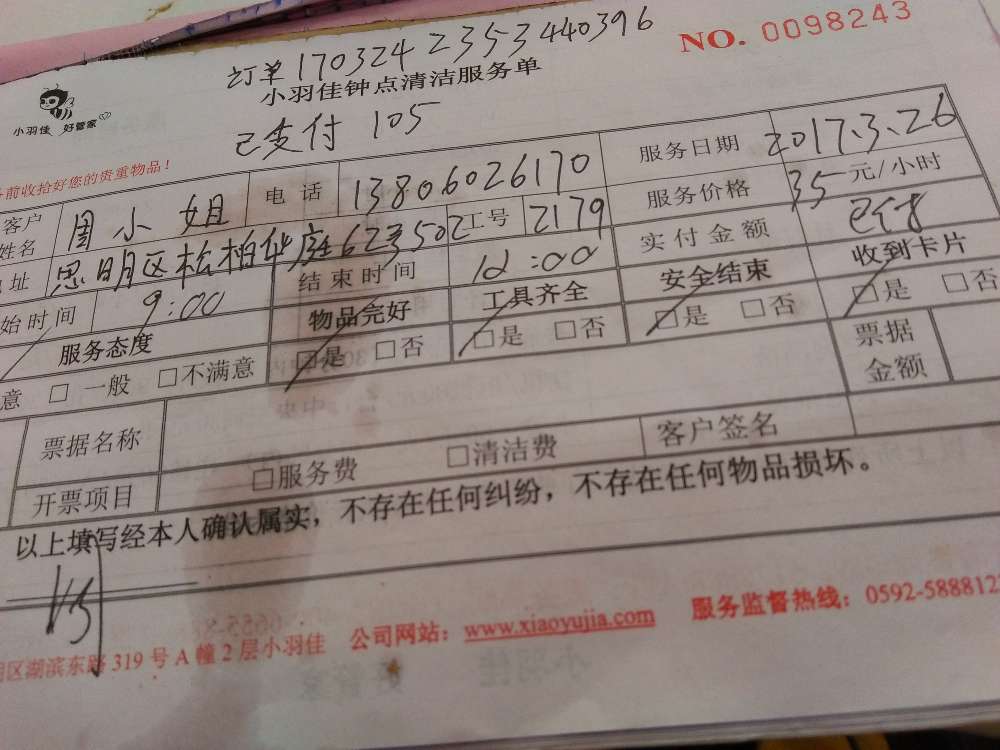 订单 170324 2353440396
NO. 0098243
小羽佳钟点清洁服务单
小羽佳 好管家
已支付 105
前收拾好您的贵重物品！
客户姓名 周小姐 电话 13806026170 服务日期 2017.3.26
址 思明区松柏华庭62号502 工号 2179 服务价格 35元/小时
始时间 9:00 结束时间 12:00 实付金额 已付
服务态度 物品完好 工具齐全 安全结束 收到卡片
意 □一般 □不满意 □是 □否 □是 □否 □是 □否 □是 □否
票据名称 票据金额
开票项目 □服务费 □清洁费 客户签名
以上填写经本人确认属实，不存在任何纠纷，不存在任何物品损坏。
区湖滨东路319号A幢2层小羽佳 公司网站：www.xiaoyujia.com 服务监督热线：0592-588812